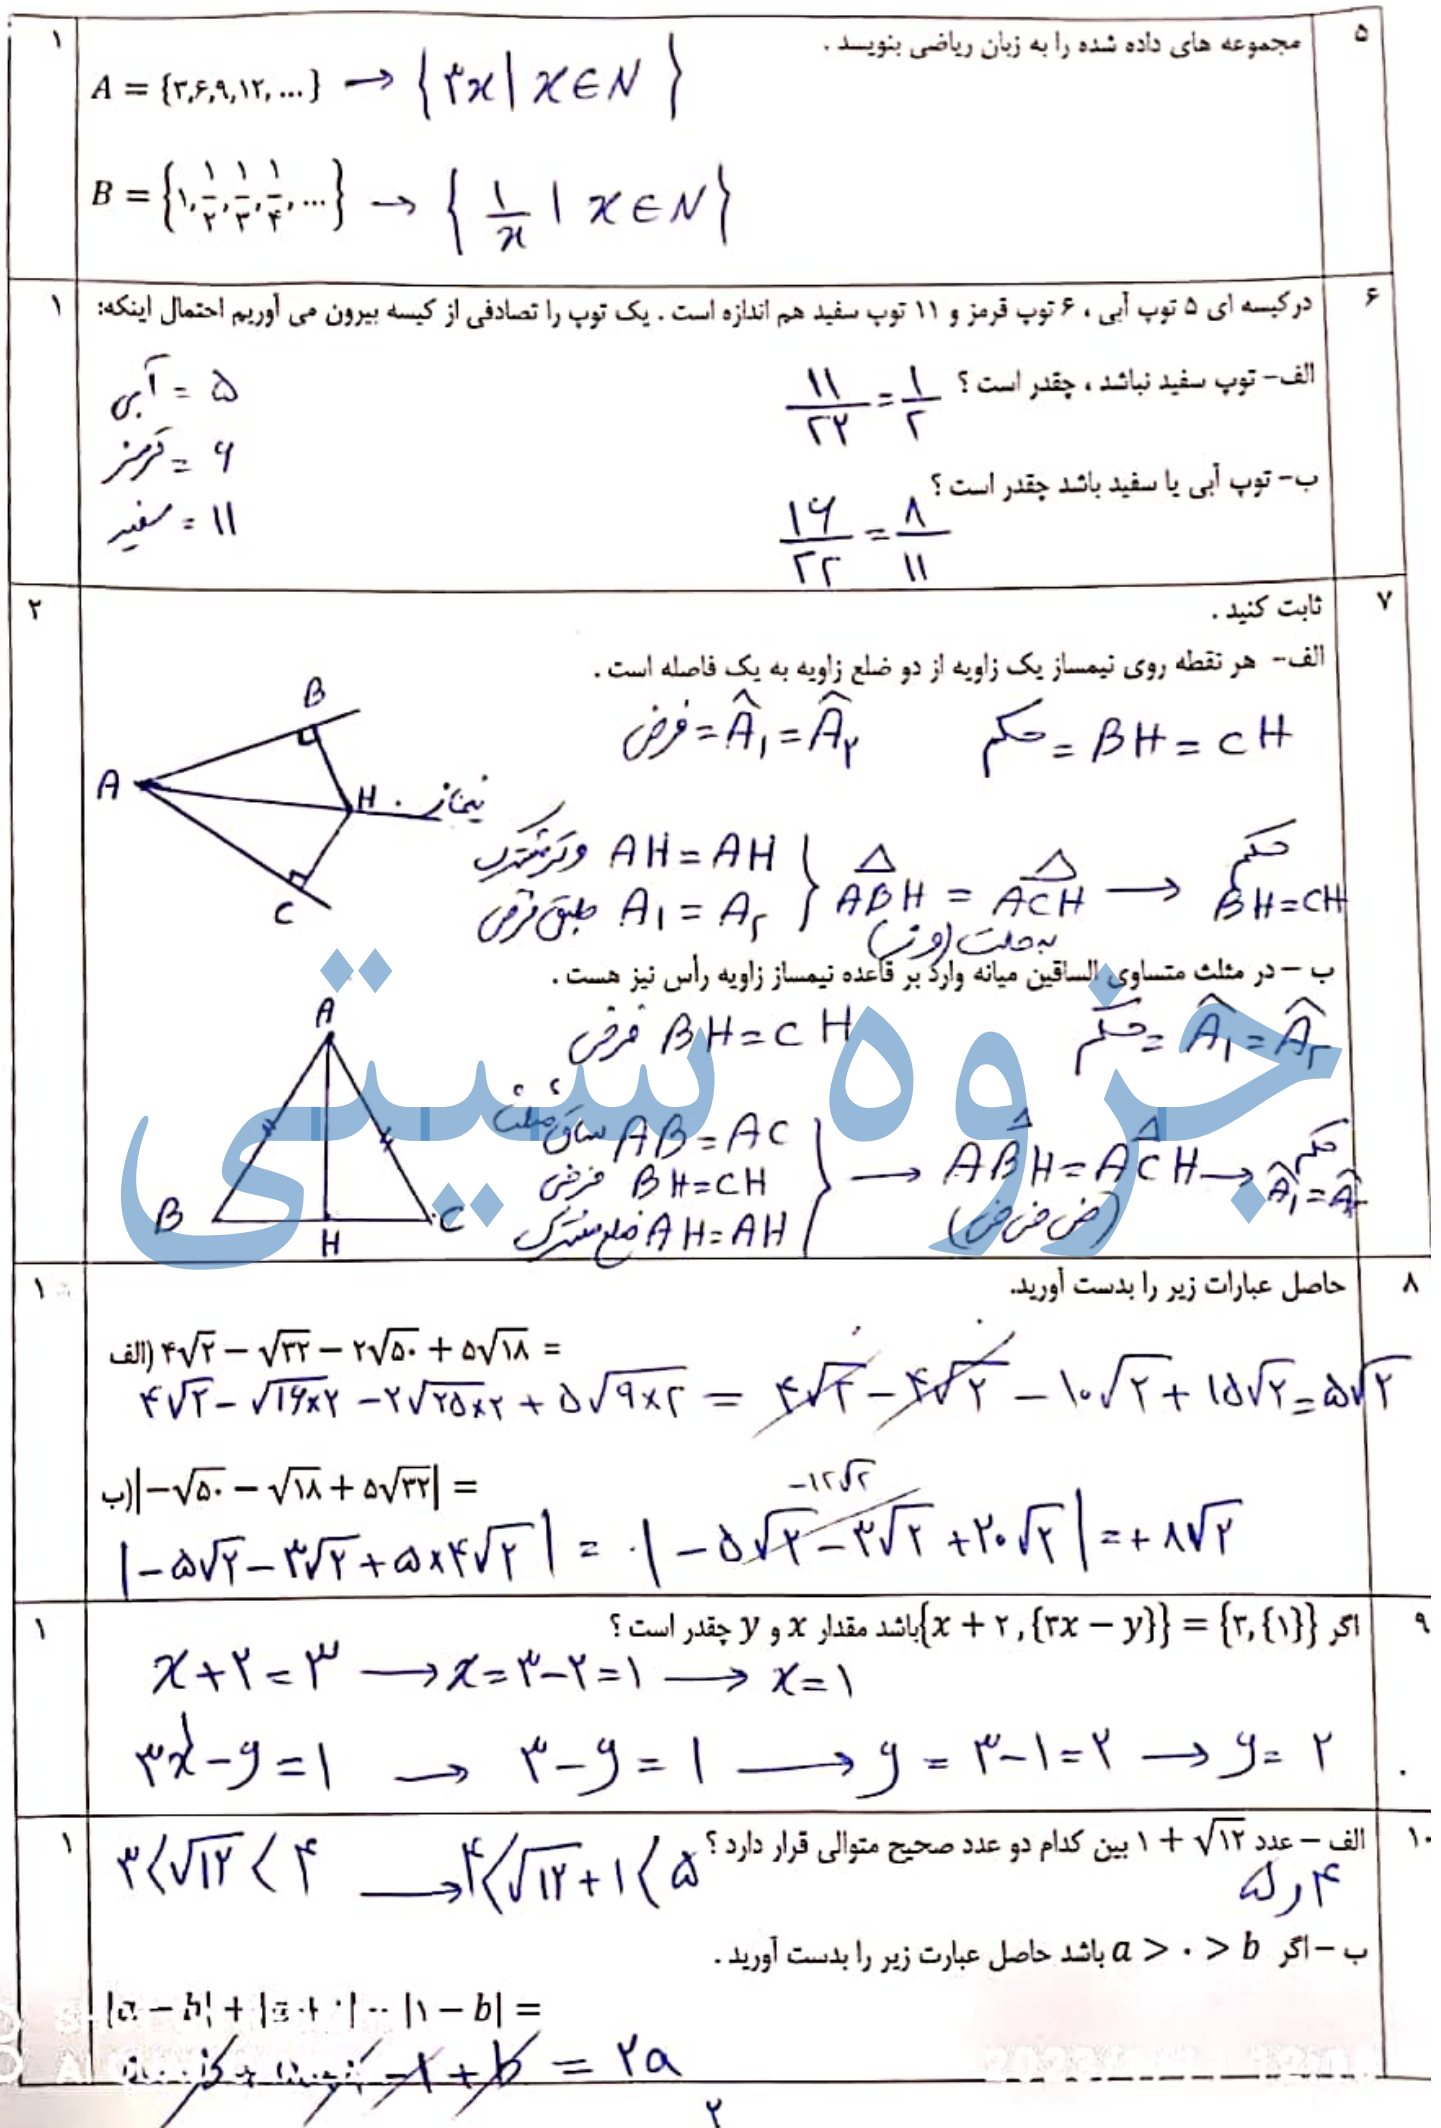 ۵ مجموعه های داده شده را به زبان ریاضی بنویسد . ۱
A = {۳,۶,۹,۱۲, ...} → {۳x | x ∈ N}
B = {۱, ۱/۲, ۱/۳, ۱/۴, ...} → {۱/x | x ∈ N}
۶ درکیسه ای ۵ توپ آبی ، ۶ توپ قرمز و ۱۱ توپ سفید هم اندازه است . یک توپ را تصادفی از کیسه بیرون می آوریم احتمال اینکه: ۱
الف- توپ سفید نباشد ، چقدر است ؟ ۱۱/۲۲ = ۱/۲
آبی = ۵
قرمز = ۶
ب- توپ آبی یا سفید باشد چقدر است ؟ ۱۶/۲۲ = ۸/۱۱
سفید = ۱۱
۷ ثابت کنید . ۲
الف- هر نقطه روی نیمساز یک زاویه از دو ضلع زاویه به یک فاصله است .
حکم = BH = CH فرض = Â₁ = Â₂
A B H C نیمساز
AH = AH وتر مشترک
A₁ = A₂ طبق فرض
ABH = ACH → حکم BH = CH
به حالت (وز)
ب – در مثلث متساوی الساقین میانه وارد بر قاعده نیمساز زاویه رأس نیز هست .
حکم = Â₁ = Â₂ BH = CH فرض
A B H C
AB = AC ساق مثلث
BH = CH فرض
AH = AH ضلع مشترک
ABH = ACH → حکم Â₁ = Â₂
(ض ض ض)
جزوه سیتی
۸ حاصل عبارات زیر را بدست آورید. ۱
الف) ۴√۲ − √۳۲ − ۲√۵۰ + ۵√۱۸ =
۴√۲ − √۱۶×۲ − ۲√۲۵×۲ + ۵√۹×۲ = ۴√۲ − ۴√۲ − ۱۰√۲ + ۱۵√۲ = ۵√۲
ب) |−√۵۰ − √۱۸ + ۵√۳۲| =
−۱۲√۲
|−۵√۲ − ۳√۲ + ۵×۴√۲| = |−۵√۲ − ۳√۲ + ۲۰√۲| = +۸√۲
۹ اگر {x + ۲ , {۳x − y}} = {۳, {۱}} باشد مقدار x و y چقدر است ؟ ۱
x + ۲ = ۳ → x = ۳ − ۲ = ۱ → x = ۱
۳x − y = ۱ → ۳ − y = ۱ → y = ۳ − ۱ = ۲ → y = ۲
۱۰ الف – عدد √۱۲ + ۱ بین کدام دو عدد صحیح متوالی قرار دارد ؟ ۱
۳ < √۱۲ < ۴ → ۴ < √۱۲ + ۱ < ۵
۴ و ۵
ب – اگر a > ۰ > b باشد حاصل عبارت زیر را بدست آورید .
|a − b| + |a + ۱| − |۱ − b| =
− ۱ + b = ۲a
۲